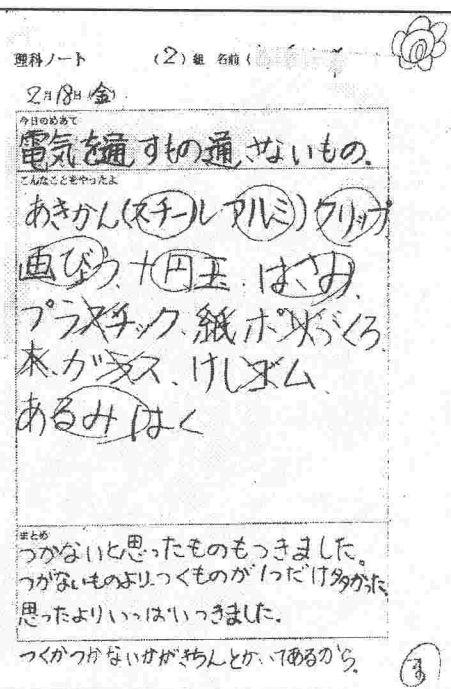 理科ノート (2)組 名前(
2月18日(金)
今日のめあて
電気を通すもの通さないもの。
こんなことをやったよ
あきかん(スチールアルミ)クリップ
画びょう、十円玉、はさみ、
プラスチック、紙、ポリぶくろ
木、ガラス、けしゴム
あるみはく
まとめ
つかないと思ったものもつきました。
つかないものより、つくものが1つだけ多かった。
思ったよりいっぱいつきました。
つくかつかないかがきちんとかいてあるから。